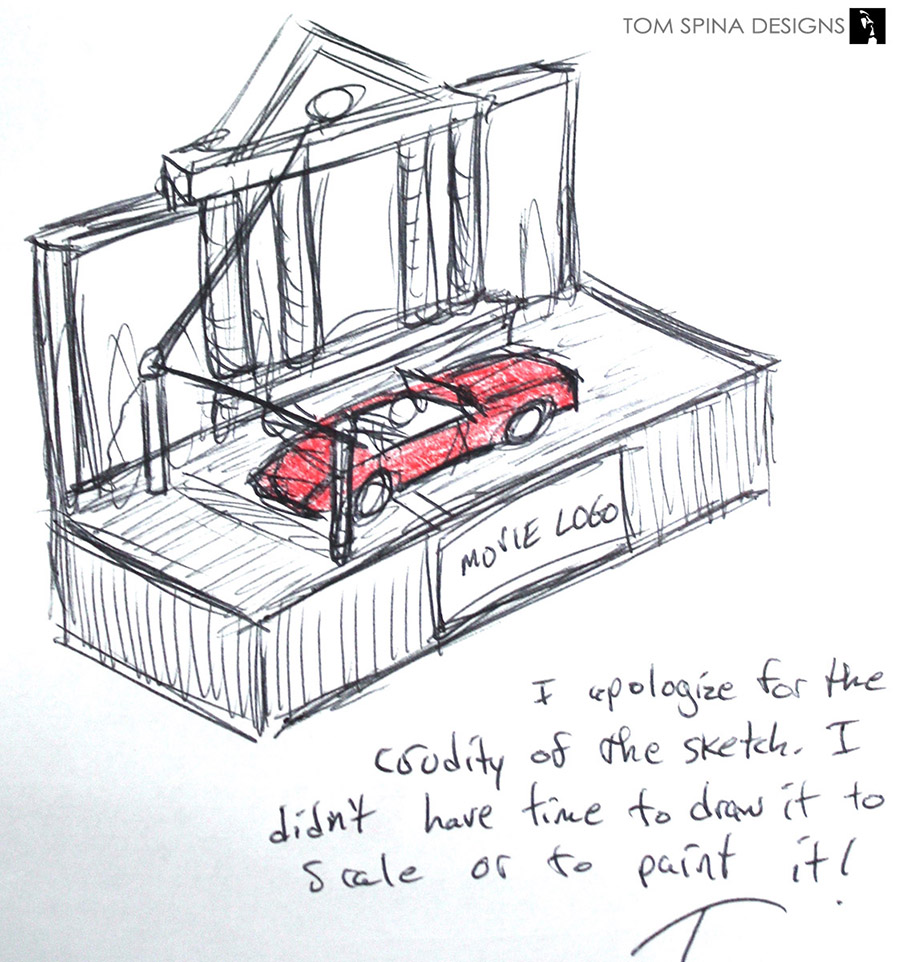 TOM SPINA DESIGNS
MOVIE LOGO
I apologize for the
crudity of the sketch. I
didn't have time to draw it to
scale or to paint it!
T